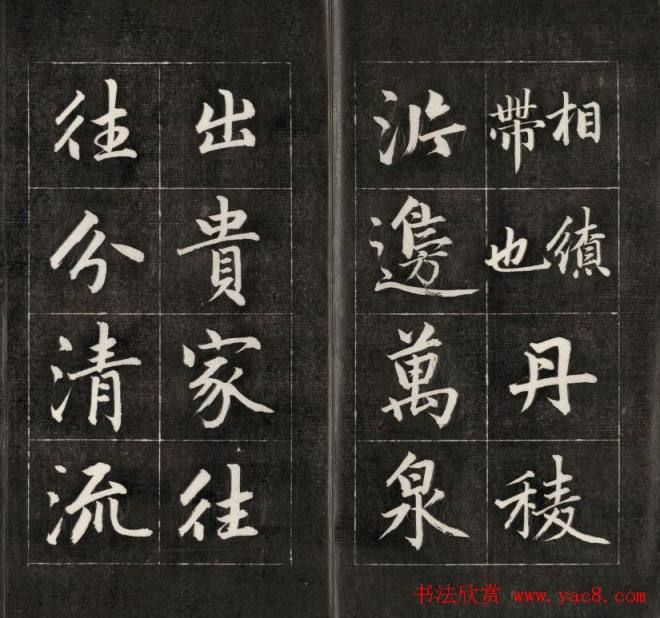 相
帶也
丹稜
沜邊萬泉
出貴家往
往分清流
书法欣赏 www.yac8.com